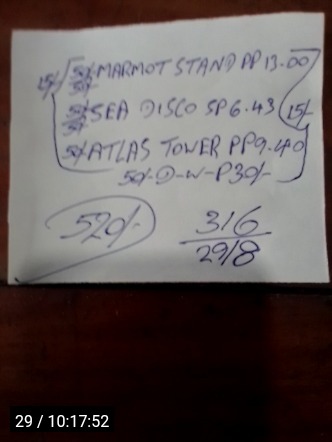 15/- 50/- MARMOT STAND PP 13.00
50/-
50/- SEA DISCO SP 6.43 15/-
50/-
50/- ATLAS TOWER PP 9.40
50/- D-W-P 30/-
520/-
316
29/8
29 / 10:17:52